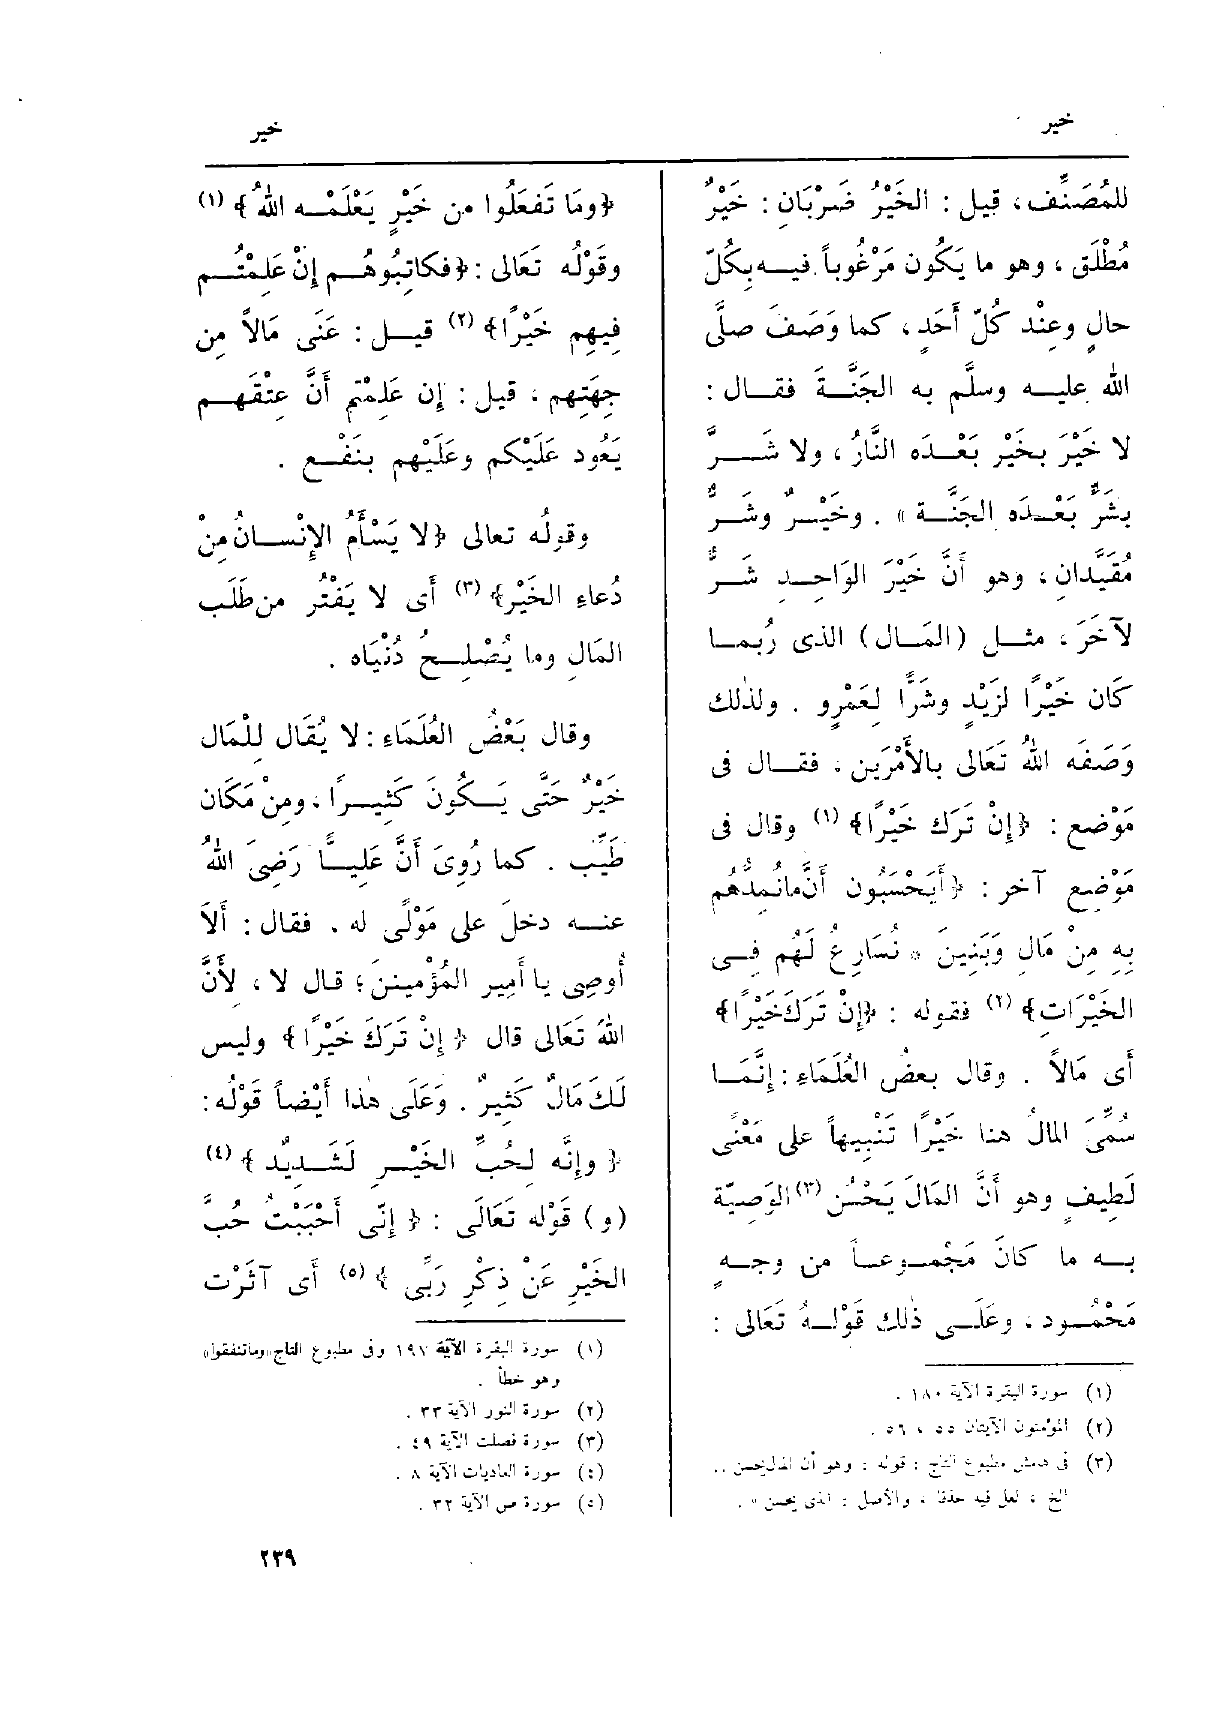 خير
للمُصَنِّف، قيل : الخَيْرُ ضَرْبَانِ : خَيْرٌ
مُطْلَق ، وهو ما يَكُون مَرْغُوباً فيه بِكُلّ
حالٍ وعِنْد كُلّ أَحَدٍ ، كما وَصَفَ صلَّى
الله عليه وسلَّم به الجَنَّةَ فقال :
لا خَيْرَ بخَيْر بَعْدَه النَّارُ ، ولا شَرَّ
بشَرٍّ بَعْدَه الجَنَّة » . وخَيْرٌ وشَرٌّ
مُقَيَّدانِ ، وهو أَنَّ خَيْرَ الوَاحِدِ شَرٌّ
لآخَرَ ، مثل (المَال) الذى رُبما
كَان خَيْرًا لزَيْدٍ وشَرًّا لعَمْرٍو . ولذٰلك
وَصَفَه اللهُ تَعَالى بالأَمْرَين ، فقال فى
مَوْضع : ﴿إِنْ تَرَك خَيْرًا﴾ (١) وقال فى
مَوْضِع آخر : ﴿أَيَحْسَبُون أَنَّمانُمِدُّهُم
بِهِ مِنْ مَال وَبَنِينَ * نُسَارِعُ لَهُم فِى
الخَيْرَاتِ﴾ (٢) فقوله : ﴿إِنْ تَرَكَ خَيْرًا﴾
أَى مَالاً . وقال بعضُ العُلَمَاء : إِنَّمَا
سُمِّىَ المالُ هنا خَيْرًا تَنْبِيهاً على مَعْنًى
لَطِيفٍ وهو أَنَّ المَالَ يَحْسُن (٣) الوَصِيَّة
به ما كانَ مَجْموعاً من وجهٍ
مَحْمُود ، وعَلَى ذٰلك قَوْلهُ تَعَالى :
(١) سورة البقرة الآية ١٨٠ .
(٢) المؤمنون الآيتان ٥٥ ، ٥٦ .
(٣) فى هامش مطبوع التاج : قوله : وهو أن المال يحسن ..
الخ ، لعل فيه حذفا ، والأصل : الذى يحسن » .
خير
﴿وَمَا تَفعَلُوا من خَيْرٍ يَعْلَمْه اللهُ﴾ (١)
وقَوْلُه تَعَالى : ﴿فكاتِبُوهُم إِنْ عَلِمْتُم
فِيهِم خَيْرًا﴾ (٢) قيل : عَنَى مَالاً مِن
جِهَتِهم ، قيل : إِن عَلِمْتم أَنَّ عِتْقَهم
يَعُود عَلَيْكم وعَلَيْهم بنَفْع .
وقولُه تعالى ﴿لا يَسْأَمُ الإِنْسانُ مِنْ
دُعاءِ الخَيْرِ﴾ (٣) أَى لا يَفْتُر من طَلَب
المَالِ وما يُصْلِحُ دُنْيَاه .
وقال بَعْضُ العُلَمَاءِ : لا يُقَال لِلْمَال
خَيْرٌ حَتَّى يَكُونَ كَثِيرًا ، ومِنْ مَكَان
طَيِّب . كما رُوِىَ أَنَّ عَلِيًّا رَضِىَ اللهُ
عنه دخلَ على مَوْلًى له . فقال : أَلاَ
أُوصِى يا أَمِير المُؤْمِنينَ ؛ قال لا ، لأَنَّ
اللهَ تَعَالى قال ﴿ إِنْ تَرَكَ خَيْرًا ﴾ وليس
لَكَ مَالٌ كَثِيرٌ . وَعَلَى هٰذا أَيْضاً قَوْلُه :
﴿ وإِنَّه لِحُبِّ الخَيْرِ لَشَدِيدٌ ﴾ (٤)
(و) قَوْلُه تَعَالَى : ﴿ إِنّى أَحْبَبْتُ حُبَّ
الخَيْرِ عَنْ ذِكْرِ رَبِّى ﴾ (٥) أَى آثَرْت
(١) سورة البقرة الآية ١٩٧ وفى مطبوع التاج «وماتنفقوا»
وهو خطأ .
(٢) سورة النور الآية ٣٣ .
(٣) سورة فصلت الآية ٤٩ .
(٤) سورة العاديات الآية ٨ .
(٥) سورة ص الآية ٣٢ .
٢٣٩